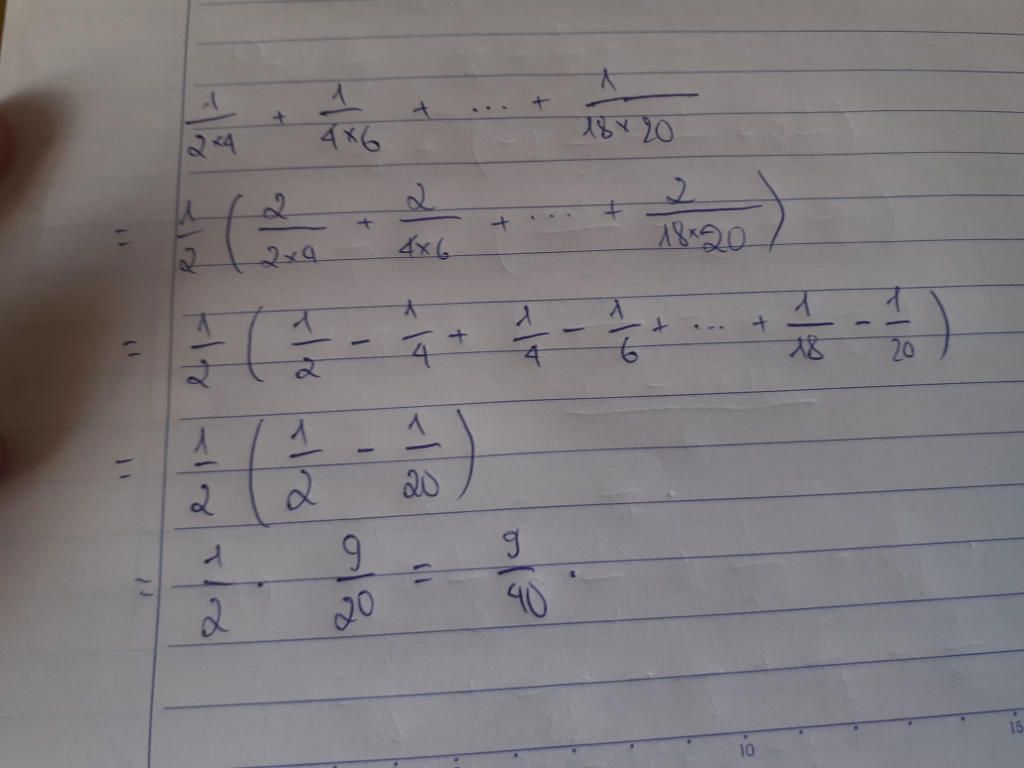 1/2×4 + 1/4×6 + ... + 1/18×20
= 1/2 ( 2/2×4 + 2/4×6 + ... + 2/18×20 )
= 1/2 ( 1/2 - 1/4 + 1/4 - 1/6 + ... + 1/18 - 1/20 )
= 1/2 ( 1/2 - 1/20 )
= 1/2 . 9/20 = 9/40 .
10 15